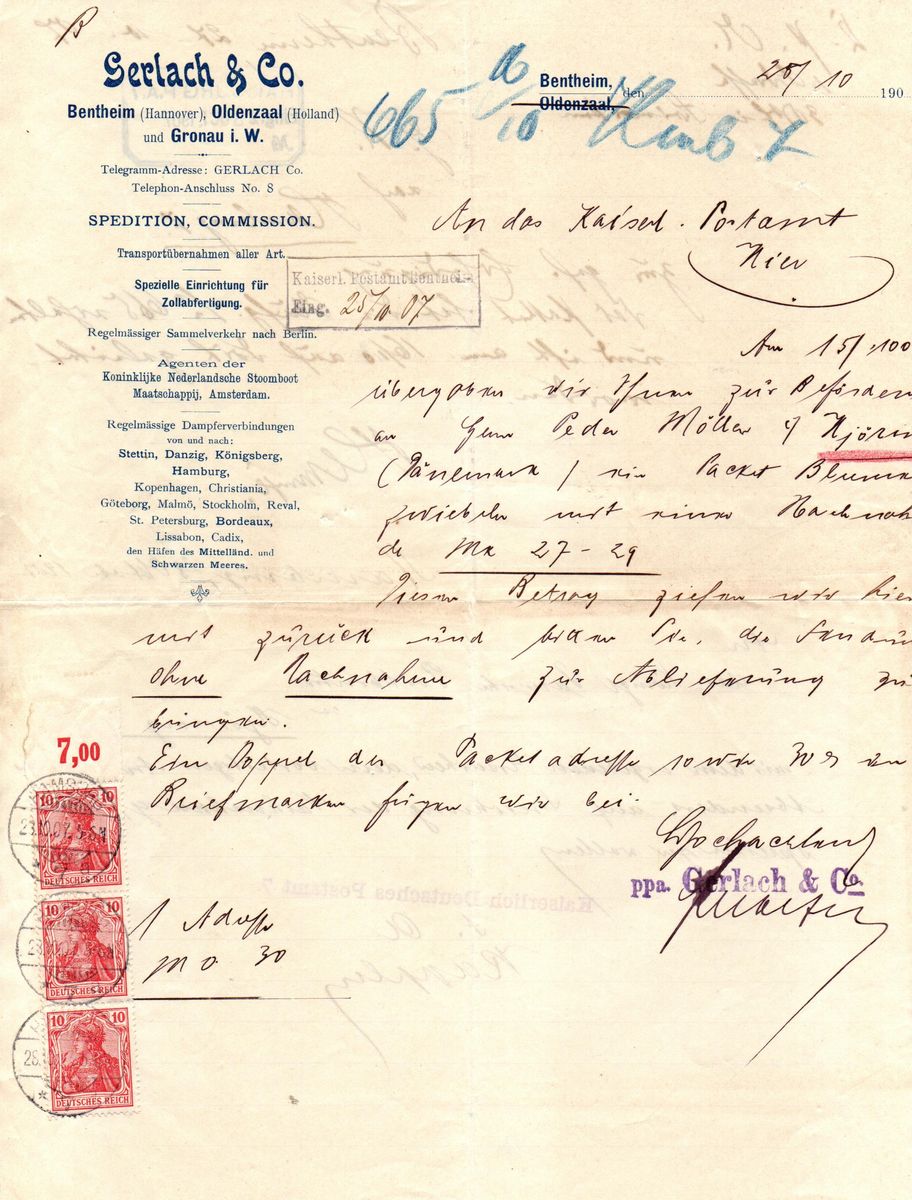 Gerlach & Co.
Bentheim (Hannover), Oldenzaal (Holland)
und Gronau i. W.
Telegramm-Adresse: GERLACH Co.
Telephon-Anschluss No. 8
SPEDITION, COMMISSION.
Transportübernahmen aller Art.
Spezielle Einrichtung für
Zollabfertigung.
Regelmässiger Sammelverkehr nach Berlin.
Agenten der
Koninklijke Nederlandsche Stoomboot
Maatschappij, Amsterdam.
Regelmässige Dampferverbindungen
von und nach:
Stettin, Danzig, Königsberg,
Hamburg,
Kopenhagen, Christiania,
Göteborg, Malmö, Stockholm, Reval,
St. Petersburg, Bordeaux,
Lissabon, Cadix,
den Häfen des Mittelländ. und
Schwarzen Meeres.
665
Bentheim,
Oldenzaal, den 25/10 190
An das Kaiserl. Postamt
Hier
Kaiserl. Postamt Bentheim
Eing. 25/10 07
Am 15/10
übergaben wir Ihnen zur Beförder
an Herrn Peder Möller
(Dänemark) ein Packet Blumen
zwiebeln mit einer Nachnah
de Mk 27-29
Diesen Betrag ziehen wir hier
mit zurück und bitten Sie, die Sendun
ohne Nachnahme zur Ablieferung zu
bringen.
Ein Doppel der Packetadresse sowie 30 in
Briefmarken fügen wir bei.
Hochachtend
ppa. Gerlach & Co.
1 Adresse
M 0.30
7,00
10 10
DEUTSCHES REICH
10 10
DEUTSCHES REICH
10 10
DEUTSCHES REICH